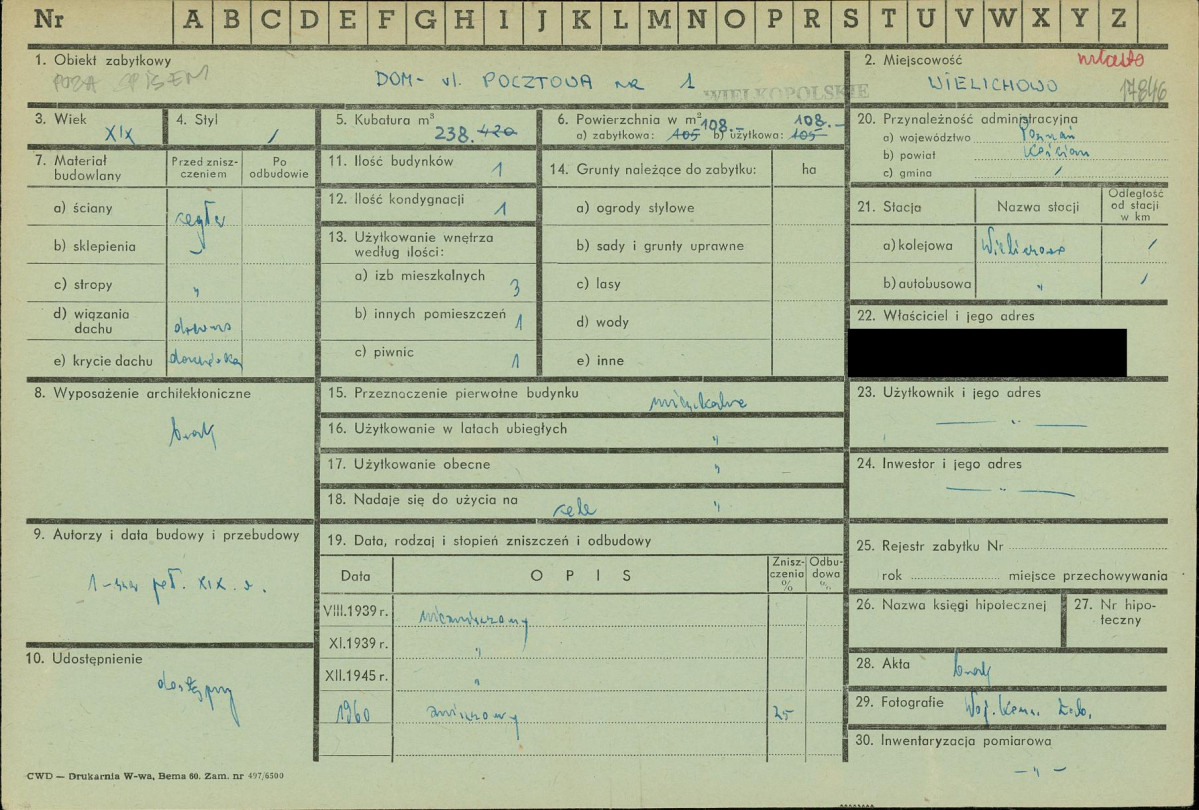 Nr A B C D E F G H I J K L M N O P R S T U V W X Y Z
1. Obiekt zabytkowy
POZA SPISEM
DOM - ul. POCZTOWA nr 1
WIELKOPOLSKIE
2. Miejscowość
miasto
WIELICHOWO
17846
3. Wiek
XIX
4. Styl
/
5. Kubatura m³
238. 420
6. Powierzchnia w m²
a) zabytkowa: 105 108.- b) użytkowa: 105 108.-
20. Przynależność administracyjna
a) województwo Poznań
b) powiat Kościan
c) gmina /
7. Materiał budowlany
Przed znisz-
czeniem
Po
odbudowie
a) ściany cegła
b) sklepienia "
c) stropy "
d) wiązania
dachu drewno
e) krycie dachu dachówka
11. Ilość budynków 1
12. Ilość kondygnacji 1
13. Użytkowanie wnętrza
według ilości:
a) izb mieszkalnych 3
b) innych pomieszczeń 1
c) piwnic 1
14. Grunty należące do zabytku: ha
a) ogrody stylowe
b) sady i grunty uprawne
c) lasy
d) wody
e) inne
21. Stacja
Nazwa stacji
Odległość
od stacji
w km
a) kolejowa Wielichowo /
b) autobusowa " /
22. Właściciel i jego adres
8. Wyposażenie architektoniczne
brak
15. Przeznaczenie pierwotne budynku mieszkalne
16. Użytkowanie w latach ubiegłych "
17. Użytkowanie obecne "
18. Nadaje się do użycia na cele "
23. Użytkownik i jego adres
— " —
24. Inwestor i jego adres
— " —
9. Autorzy i data budowy i przebudowy
1-sza poł. XIX w.
10. Udostępnienie
dostępny
19. Data, rodzaj i stopień zniszczeń i odbudowy
Data
OPIS
Znisz-
czenia
%
Odbu-
dowa
%
VIII.1939 r. niezniszczony
XI.1939 r. "
XII.1945 r. "
1960 zniszczony 25
25. Rejestr zabytku Nr
rok miejsce przechowywania
26. Nazwa księgi hipotecznej
27. Nr hipo-
teczny
28. Akta brak
29. Fotografie Woj. Kons. Zab.
30. Inwentaryzacja pomiarowa
— " —
CWD — Drukarnia W-wa, Bema 60. Zam. nr 497/6500